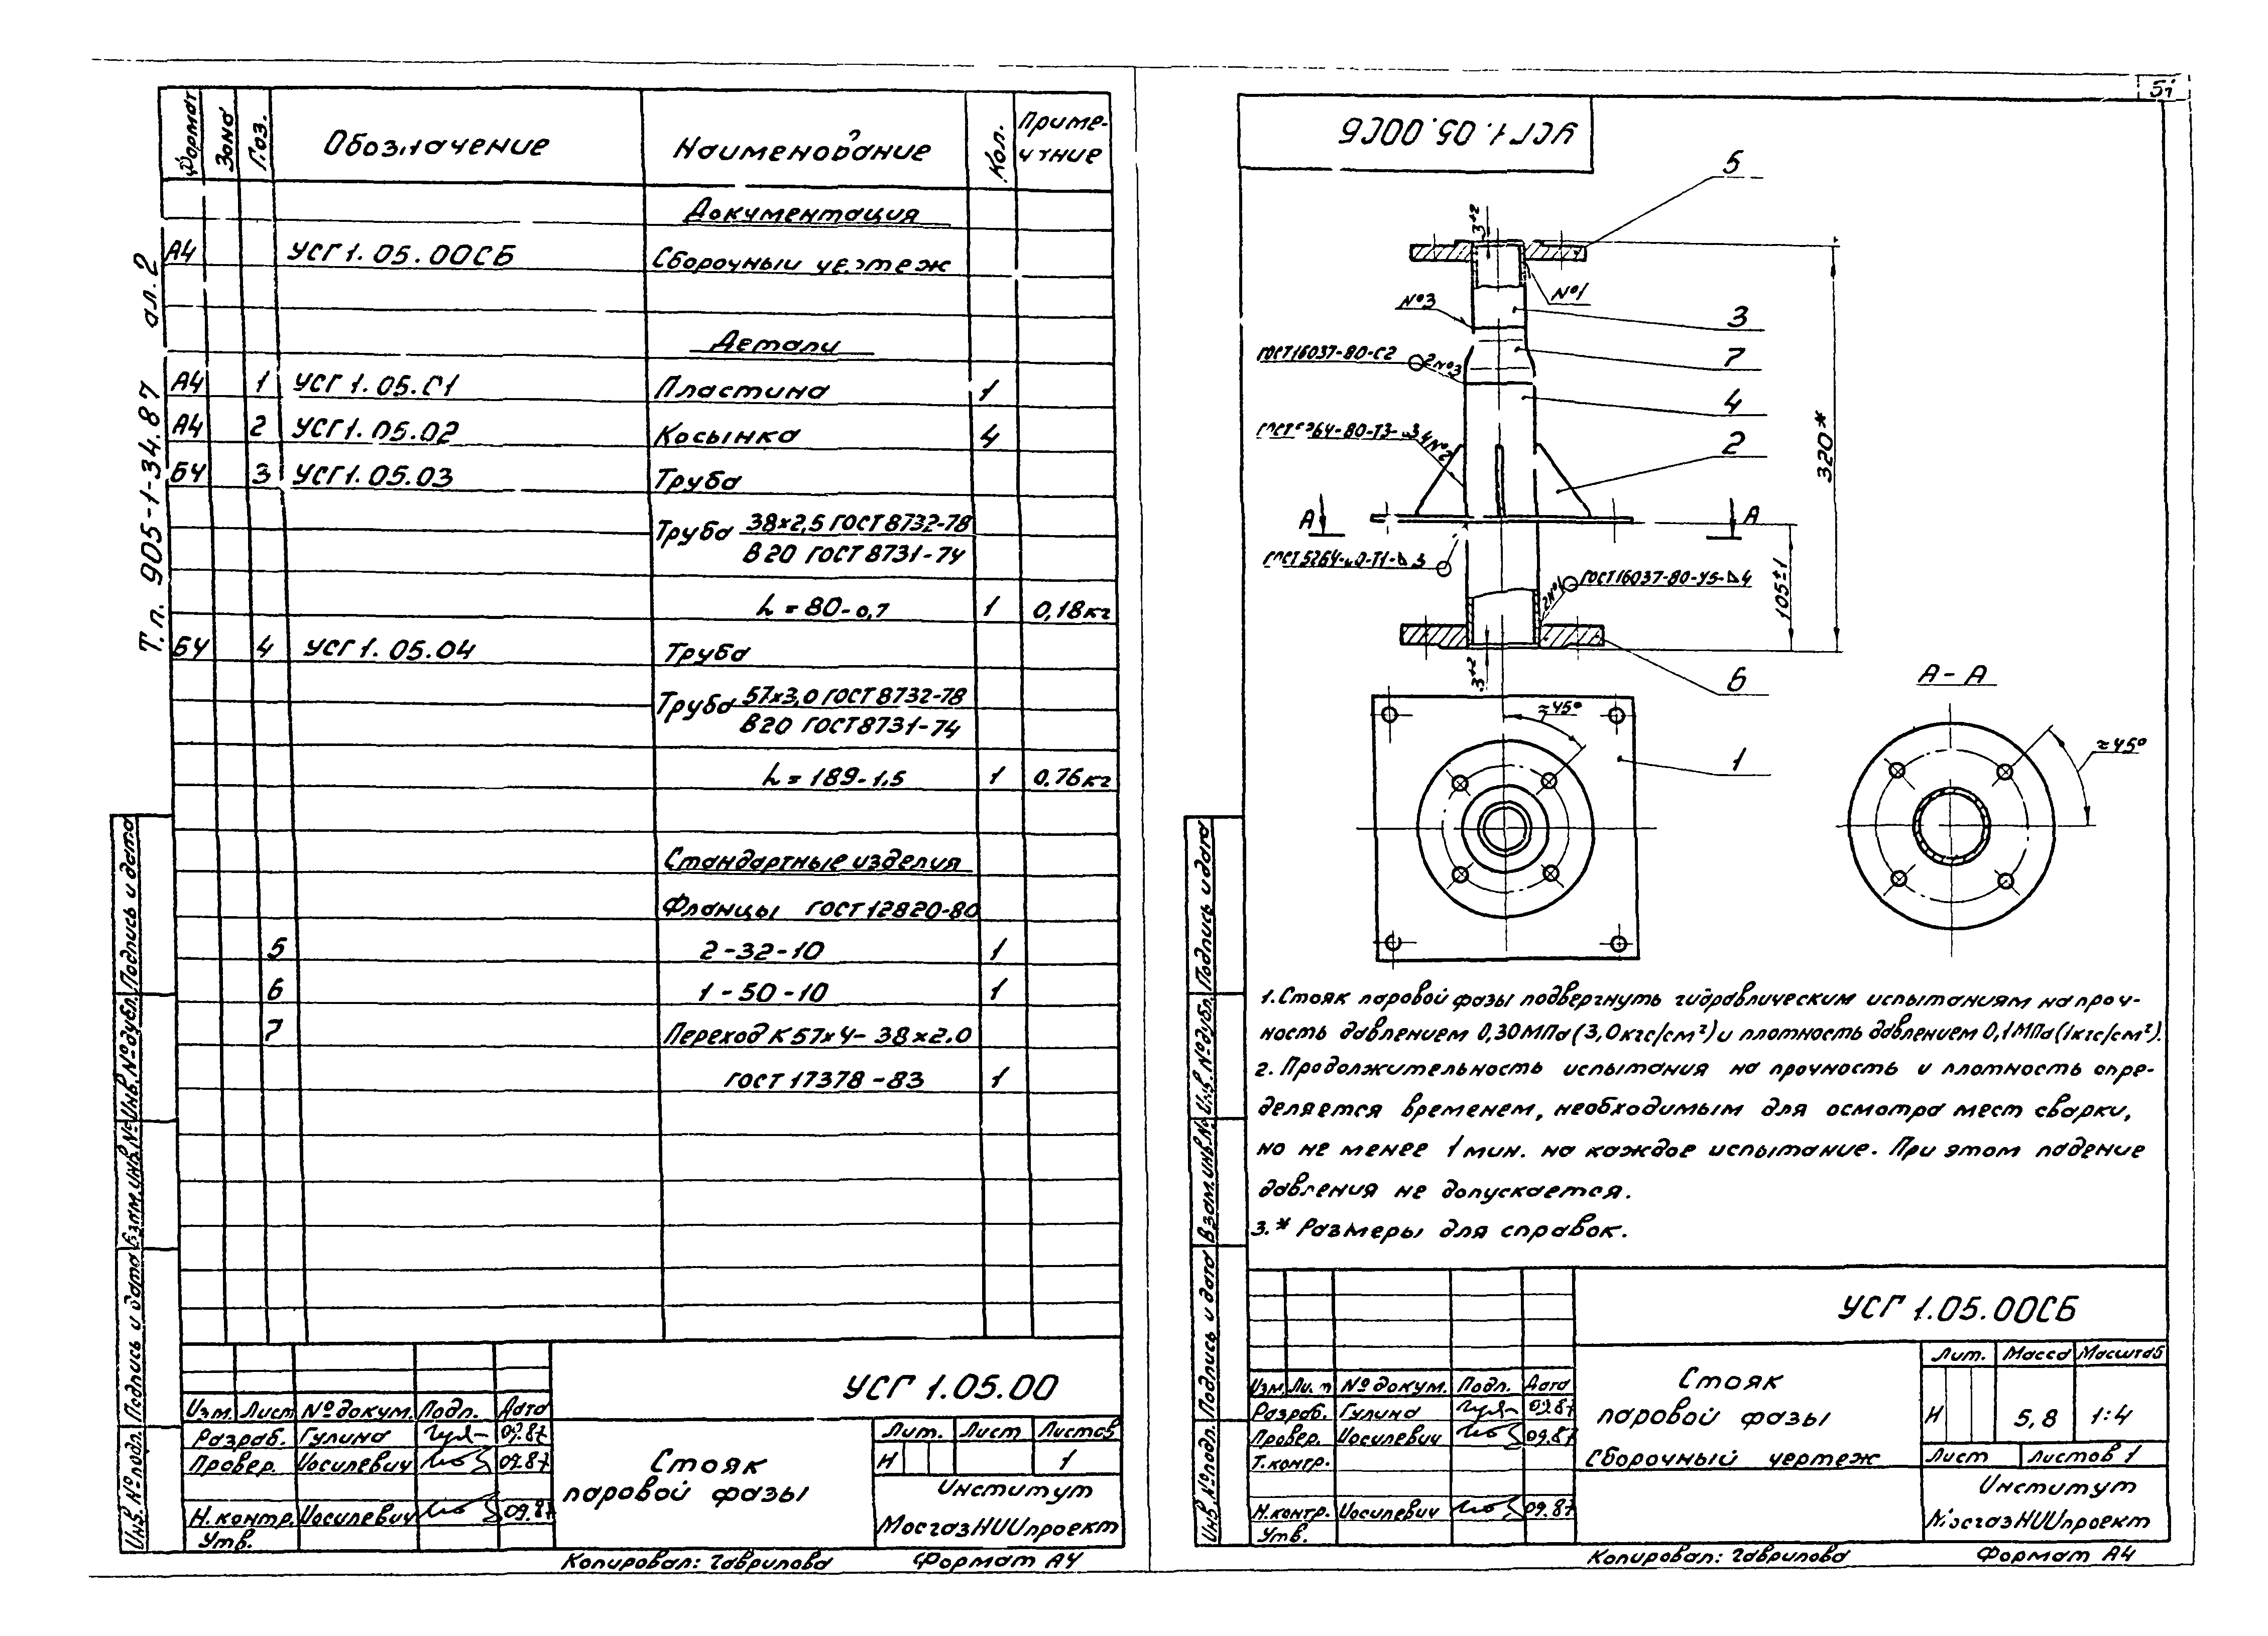 Т.п. 905-1-34.87 ал. 2
Формат Зона Поз. Обозначение Наименование Кол. Примечание
Документация
А4 УСГ1.05.00СБ Сборочный чертеж
Детали
А4 1 УСГ1.05.01 Пластина 1
А4 2 УСГ1.05.02 Косынка 4
БЧ 3 УСГ1.05.03 Труба
Труба 38×2,5 ГОСТ 8732-78
В 20 ГОСТ 8731-74
L = 80-0,7 1 0,18кг
БЧ 4 УСГ1.05.04 Труба
Труба 57×3,0 ГОСТ 8732-78
В20 ГОСТ 8731-74
L = 189-1.5 1 0.76кг
Стандартные изделия
Фланцы ГОСТ 12820-80
5 2-32-10 1
6 1-50-10 1
7 Переход К 57×4-38×2.0
ГОСТ 17378-83 1
Инв. № подл. Подпись и дата Взам. инв. № Инв. № дубл. Подпись и дата
УСГ 1.05.00
Изм. Лист № докум. Подп. Дата
Разраб. Гулина 09.87
Провер. Иосилевич 09.87
Н.контр. Иосилевич 09.87
Утв.
Стояк
паровой фазы
Лит. Лист Листов
И 1
Институт
МосгазНИИпроект
Копировал: Гаврилова Формат А4
51
УСГ1.05.00СБ
5
3+2
№1
№3
3
ГОСТ 16037-80-С2 2№3
7
4
2№2
2
320*
А А
ГОСТ 16037-80-У5-⊿4
2№1
105±1
3+2
6
А-А
≈45°
≈45°
1
1. Стояк паровой фазы подвергнуть гидравлическим испытаниям на проч-
ность давлением 0,30МПа (3,0кгс/см²) и плотность давлением 0,1МПа (1кгс/см²).
2. Продолжительность испытания на прочность и плотность опре-
деляется временем, необходимым для осмотра мест сварки,
но не менее 1 мин. на каждое испытание. При этом падение
давления не допускается.
3.* Размеры для справок.
Инв. № подл. Подпись и дата Взам. инв. № Инв. № дубл. Подпись и дата
УСГ 1.05.00СБ
Изм. Лист № докум. Подп. Дата
Разраб. Гулина 09.87
Провер. Иосилевич 09.87
Т.контр.
Н.контр. Иосилевич 09.87
Утв.
Стояк
паровой фазы
Сборочный чертеж
Лит. Масса Масштаб
И 5,8 1:4
Лист Листов 1
Институт
МосгазНИИпроект
Копировал: Гаврилова Формат А4